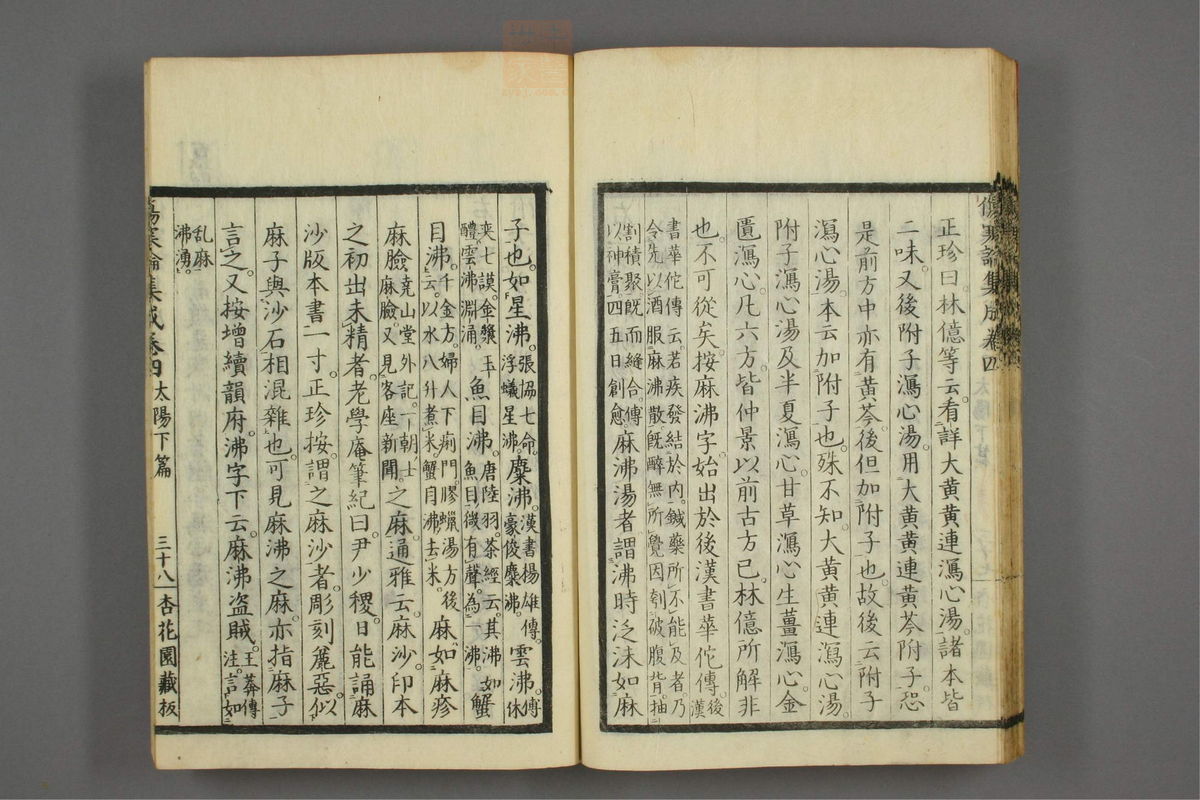 傷寒論集成卷四
正珍曰。林億等云。看詳大黃黃連瀉心湯。諸本皆
二味。又後附子瀉心湯。用大黃黃連黃芩附子。恐
是前方中亦有黃芩。後但加附子也。故後云附子
瀉心湯。本云加附子也。殊不知。大黃黃連瀉心湯。
附子瀉心湯及半夏瀉心。甘草瀉心。生薑瀉心。金
匱瀉心。凡六方。皆仲景以前古方已。林億所解非
也。不可從矣。按麻沸字。始出於後漢書華佗傳。後漢
書華佗傳云。若疾發結於內。鍼藥所不能及者。乃
令先以酒服麻沸散。既醉無所覺。因刳破腹背。抽
割積聚。既而縫合。傅
以神膏。四五日創愈。麻沸湯者。謂沸時泛沫如麻
子也。如星沸。張協七命。浮蟻星沸。麋沸。漢書楊雄傳。豪俊麋沸。雲沸。傅休
奕七謨。金漿玉
醴。雲沸淵涌。魚目沸。唐陸羽茶經云。其沸如魚目。微有聲。為一沸。蟹
目沸。千金方。婦人下痢門。膠蠟湯方後云。以水八升煮米。蟹目沸。去米。麻。如麻疹
麻臉。堯山堂外記。一朝士麻臉。又見客座新聞。之麻。通雅云。麻沙。印本
之初出未精者。老學庵筆紀曰。尹少稷日能誦麻
沙版本書一寸。正珍按。謂之麻沙者。彫刻麤惡。似
麻子與沙石相混雜也。可見麻沸之麻。亦指麻子
言之。又按增續韻府沸字下云。麻沸盜賊。王莽傳注。言如
乱麻
沸湧。
傷寒論集成卷四 太陽下篇 三十八 杏花園藏板